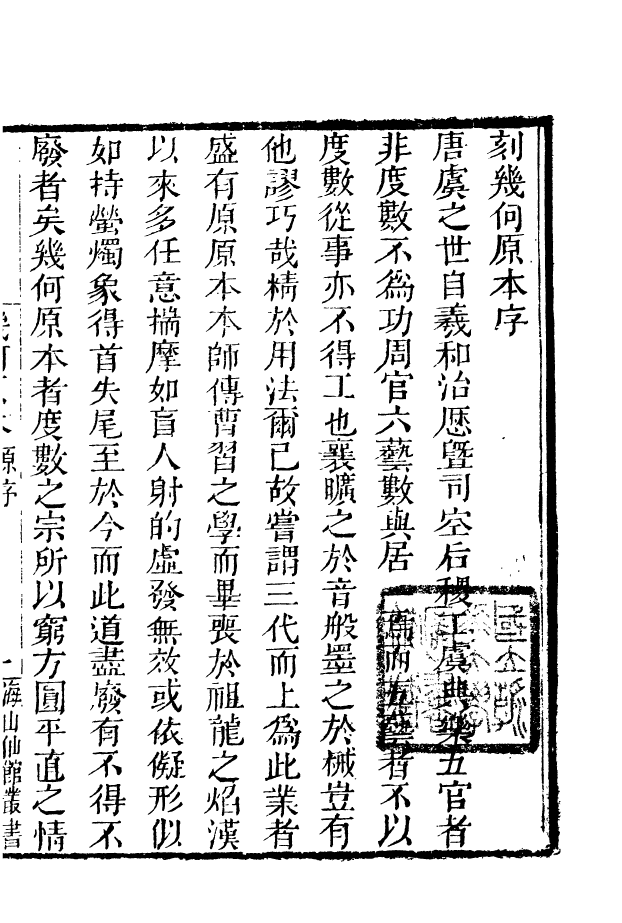 刻幾何原本序
唐虞之世自羲和治厯曁司空后稷工虞典樂五官者
非度數不爲功周官六藝數與居一焉而五藝者不以
度數從事亦不得工也襄曠之於音般墨之於械豈有
他謬巧哉精於用法爾已故嘗謂三代而上爲此業者
盛有原原本本師傳曹習之學而畢喪於祖龍之焰漢
以來多任意揣摩如盲人射的虛發無效或依儗形似
如持螢燭象得首失尾至於今而此道盡廢有不得不
廢者矣幾何原本者度數之宗所以窮方圓平直之情
幾何原本 原序 一 海山仙館叢書